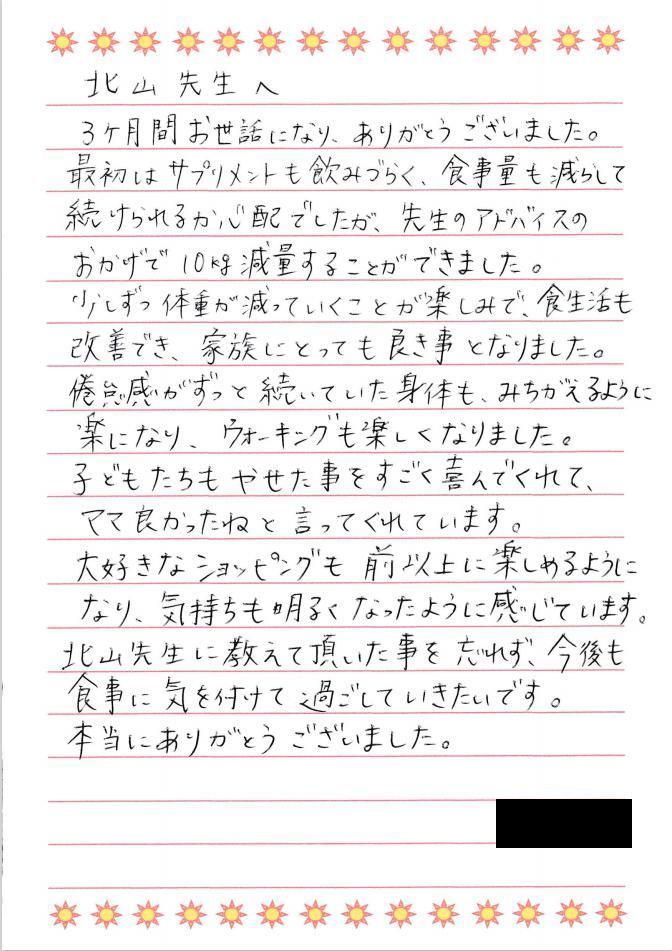 北山先生へ
3ケ月間お世話になり、ありがとうございました。
最初はサプリメントも飲みづらく、食事量も減らして
続けられるか心配でしたが、先生のアドバイスの
おかげで10kg減量することができました。
少しずつ体重が減っていくことが楽しみで、食生活も
改善でき、家族にとっても良き事となりました。
倦怠感がずっと続いていた身体も、みちがえるように
楽になり、ウォーキングも楽しくなりました。
子どもたちもやせた事をすごく喜んでくれて、
ママ良かったねと言ってくれています。
大好きなショッピングも前以上に楽しめるように
なり、気持ちも明るくなったように感じています。
北山先生に教えて頂いた事を忘れず、今後も
食事に気を付けて過ごしていきたいです。
本当にありがとうございました。